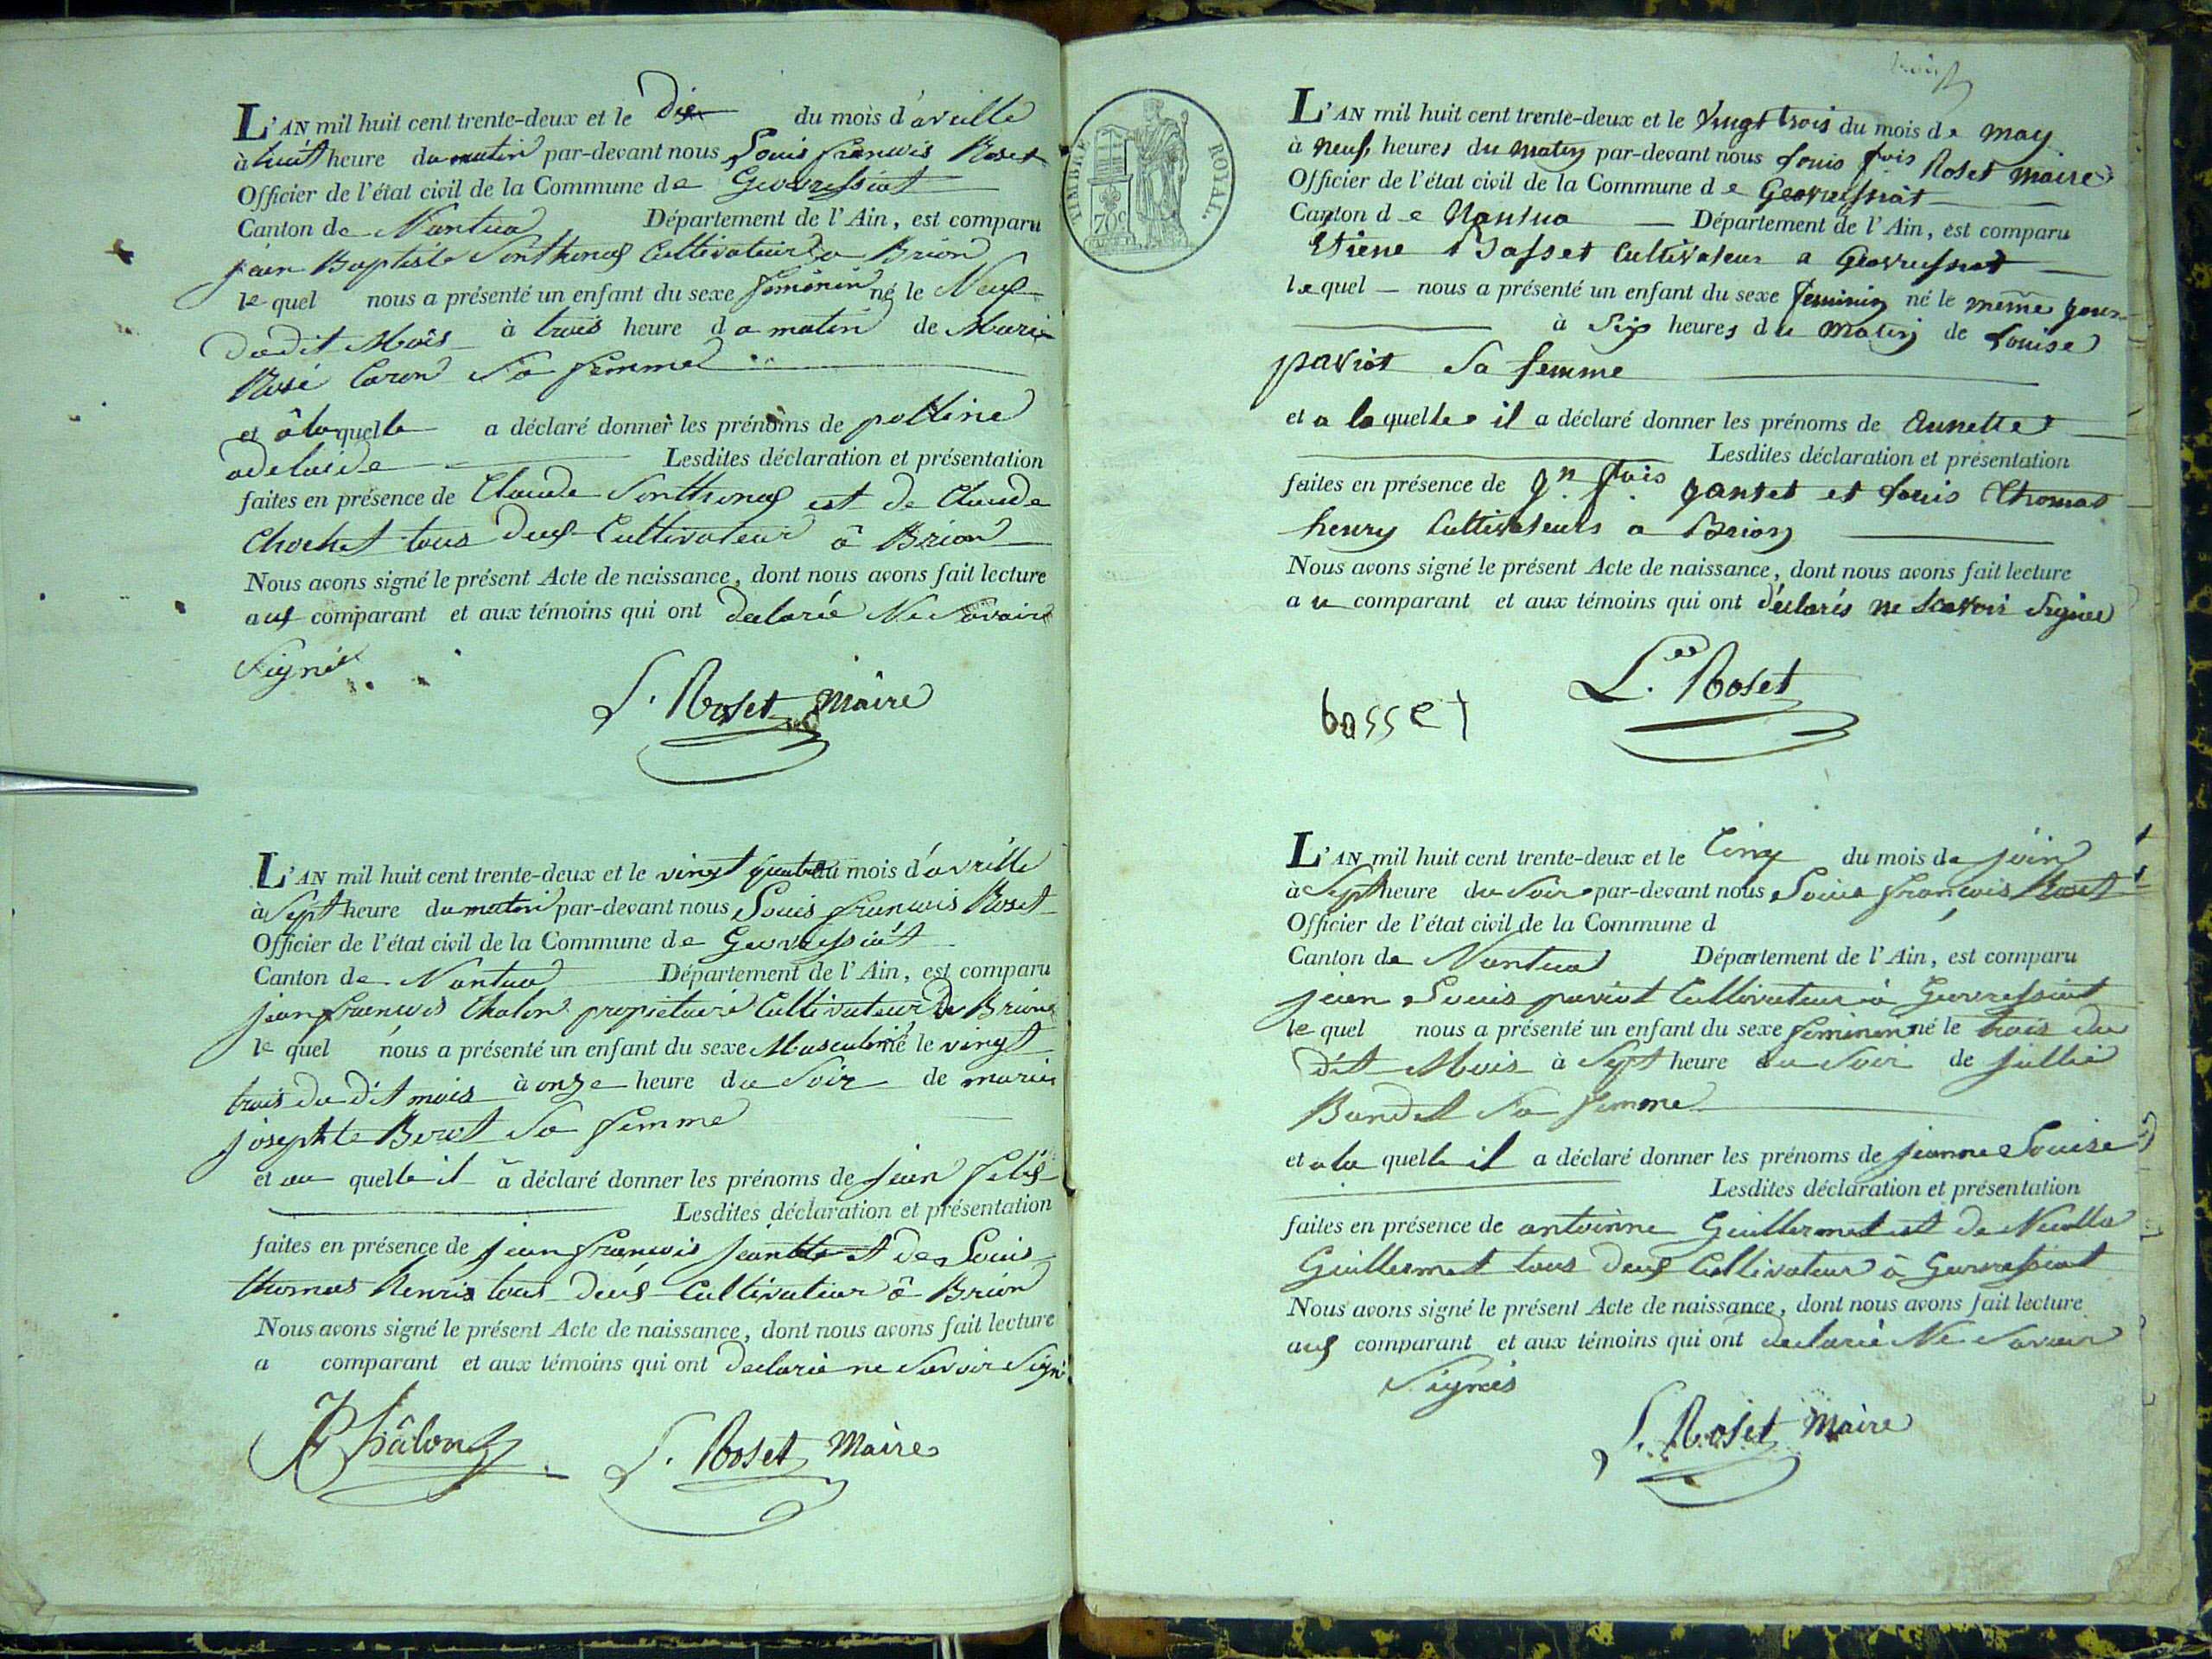 L'AN mil huit cent trente-deux et le dix du mois d'avrille
à huit heure du matin par-devant nous Louis francois Roset
Officier de l'état civil de la Commune de Gevressiat
Canton de Nantua Département de l'Ain, est comparu
jean Baptiste Sonthonax Cultivateur a Brion
le quel nous a présenté un enfant du sexe feminin né le Neuf
du dit Mois à trois heure du matin de Marie
Rose Caron Sa femme
et â la quelle a déclaré donner les prénoms de polline
adelaide Lesdites déclaration et présentation
faites en présence de Claude Sonthonax est de Claude
Chochet tous deux Cultivateur â Brion
Nous avons signé le présent Acte de naissance, dont nous avons fait lecture
aux comparant et aux témoins qui ont declarée Ne Savoir
Signé
L. Roset Maire
L'AN mil huit cent trente-deux et le vingt quatre du mois d'avrille
à Sept heure du matin par-devant nous Louis francois Roset
Officier de l'état civil de la Commune de Gevressiat
Canton de Nantua Département de l'Ain, est comparu
jean francois Chalon propietaire Cultivateur De Brion
le quel nous a présenté un enfant du sexe Masculin né le vingt
trois du dit mois à onze heure du Soir de marie
josephte Berot Sa femme
et au quelle il a déclaré donner les prénoms de jean felix
Lesdites déclaration et présentation
faites en présence de jean francois et de Louis
thomas Henris tous deux Cultivateur â Brion
Nous avons signé le présent Acte de naissance, dont nous avons fait lecture
a comparant et aux témoins qui ont declarié ne Savoir Signé
Châlon
L. Roset Maire
TIMBRE ROYAL.
70c
L'AN mil huit cent trente-deux et le Vingt trois du mois de may
à neuf heures du matin par-devant nous Louis fois Roset maire
Officier de l'état civil de la Commune de Geovressiat
Canton de Nantua Département de l'Ain, est comparu
Etiene Basset Cultivateur a Geovressiat
le quel nous a présenté un enfant du sexe feminin né le même jour
à Six heures du matin de Louise
paviot Sa femme
et a la quelle il a déclaré donner les prénoms de Annette
Lesdites déclaration et présentation
faites en présence de jn fois janset et Louis Thomas
henry Cultivateurs a Brion
Nous avons signé le présent Acte de naissance, dont nous avons fait lecture
au comparant et aux témoins qui ont déclarés ne Scavoir Signer
basset
L. Roset
L'AN mil huit cent trente-deux et le Cinq du mois de juin
à Sept heure du Soir par-devant nous Louis francois Roset
Officier de l'état civil de la Commune d
Canton de Nantua Département de l'Ain, est comparu
jean Louis paviot Cultivateur à Gevressiat
le quel nous a présenté un enfant du sexe feminen né le trois du
dit Mois à Sept heure du Soir de jullie
Bandet Sa femme
et a la quelle il a déclaré donner les prénoms de jeanne Louise
Lesdites déclaration et présentation
faites en présence de antoinne Guillermet et de
Guillermet tous deux Cultivateur à Gevressiat
Nous avons signé le présent Acte de naissance, dont nous avons fait lecture
aux comparant et aux témoins qui ont declarié Ne Savoir
Signés
L. Roset Maire